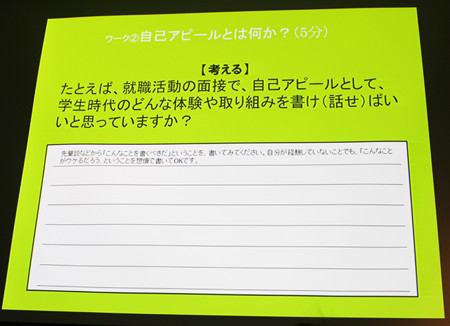 ワーク②自己アピールとは何か？(5分)
【考える】
たとえば、就職活動の面接で、自己アピールとして、
学生時代のどんな体験や取り組みを書け(話せ)ばい
いと思っていますか？
先輩談などから「こんなことを書くべきだ」ということを、書いてみてください。自分が経験していないことでも、「こんなこと
がウケるだろう、ということを想像で書いてOKです。